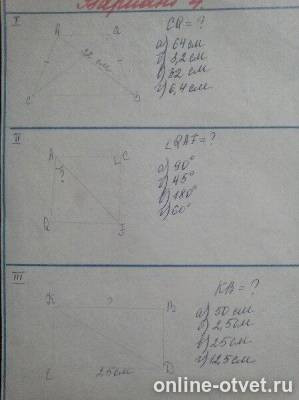 Вариант 4
I
A Q
CQ = ?
а) 64 см
б) 3,2 см
в) 32 см
г) 6,4 см
32 см
C D
II
∠QAF = ?
A C
?
а) 90°
б) 45°
в) 180°
г) 60°
Q F
III
KB = ?
K ? B
а) 50 см
б) 2,5 см
в) 25 см
г) 125 см
L 25 см D
online-otvet.ru